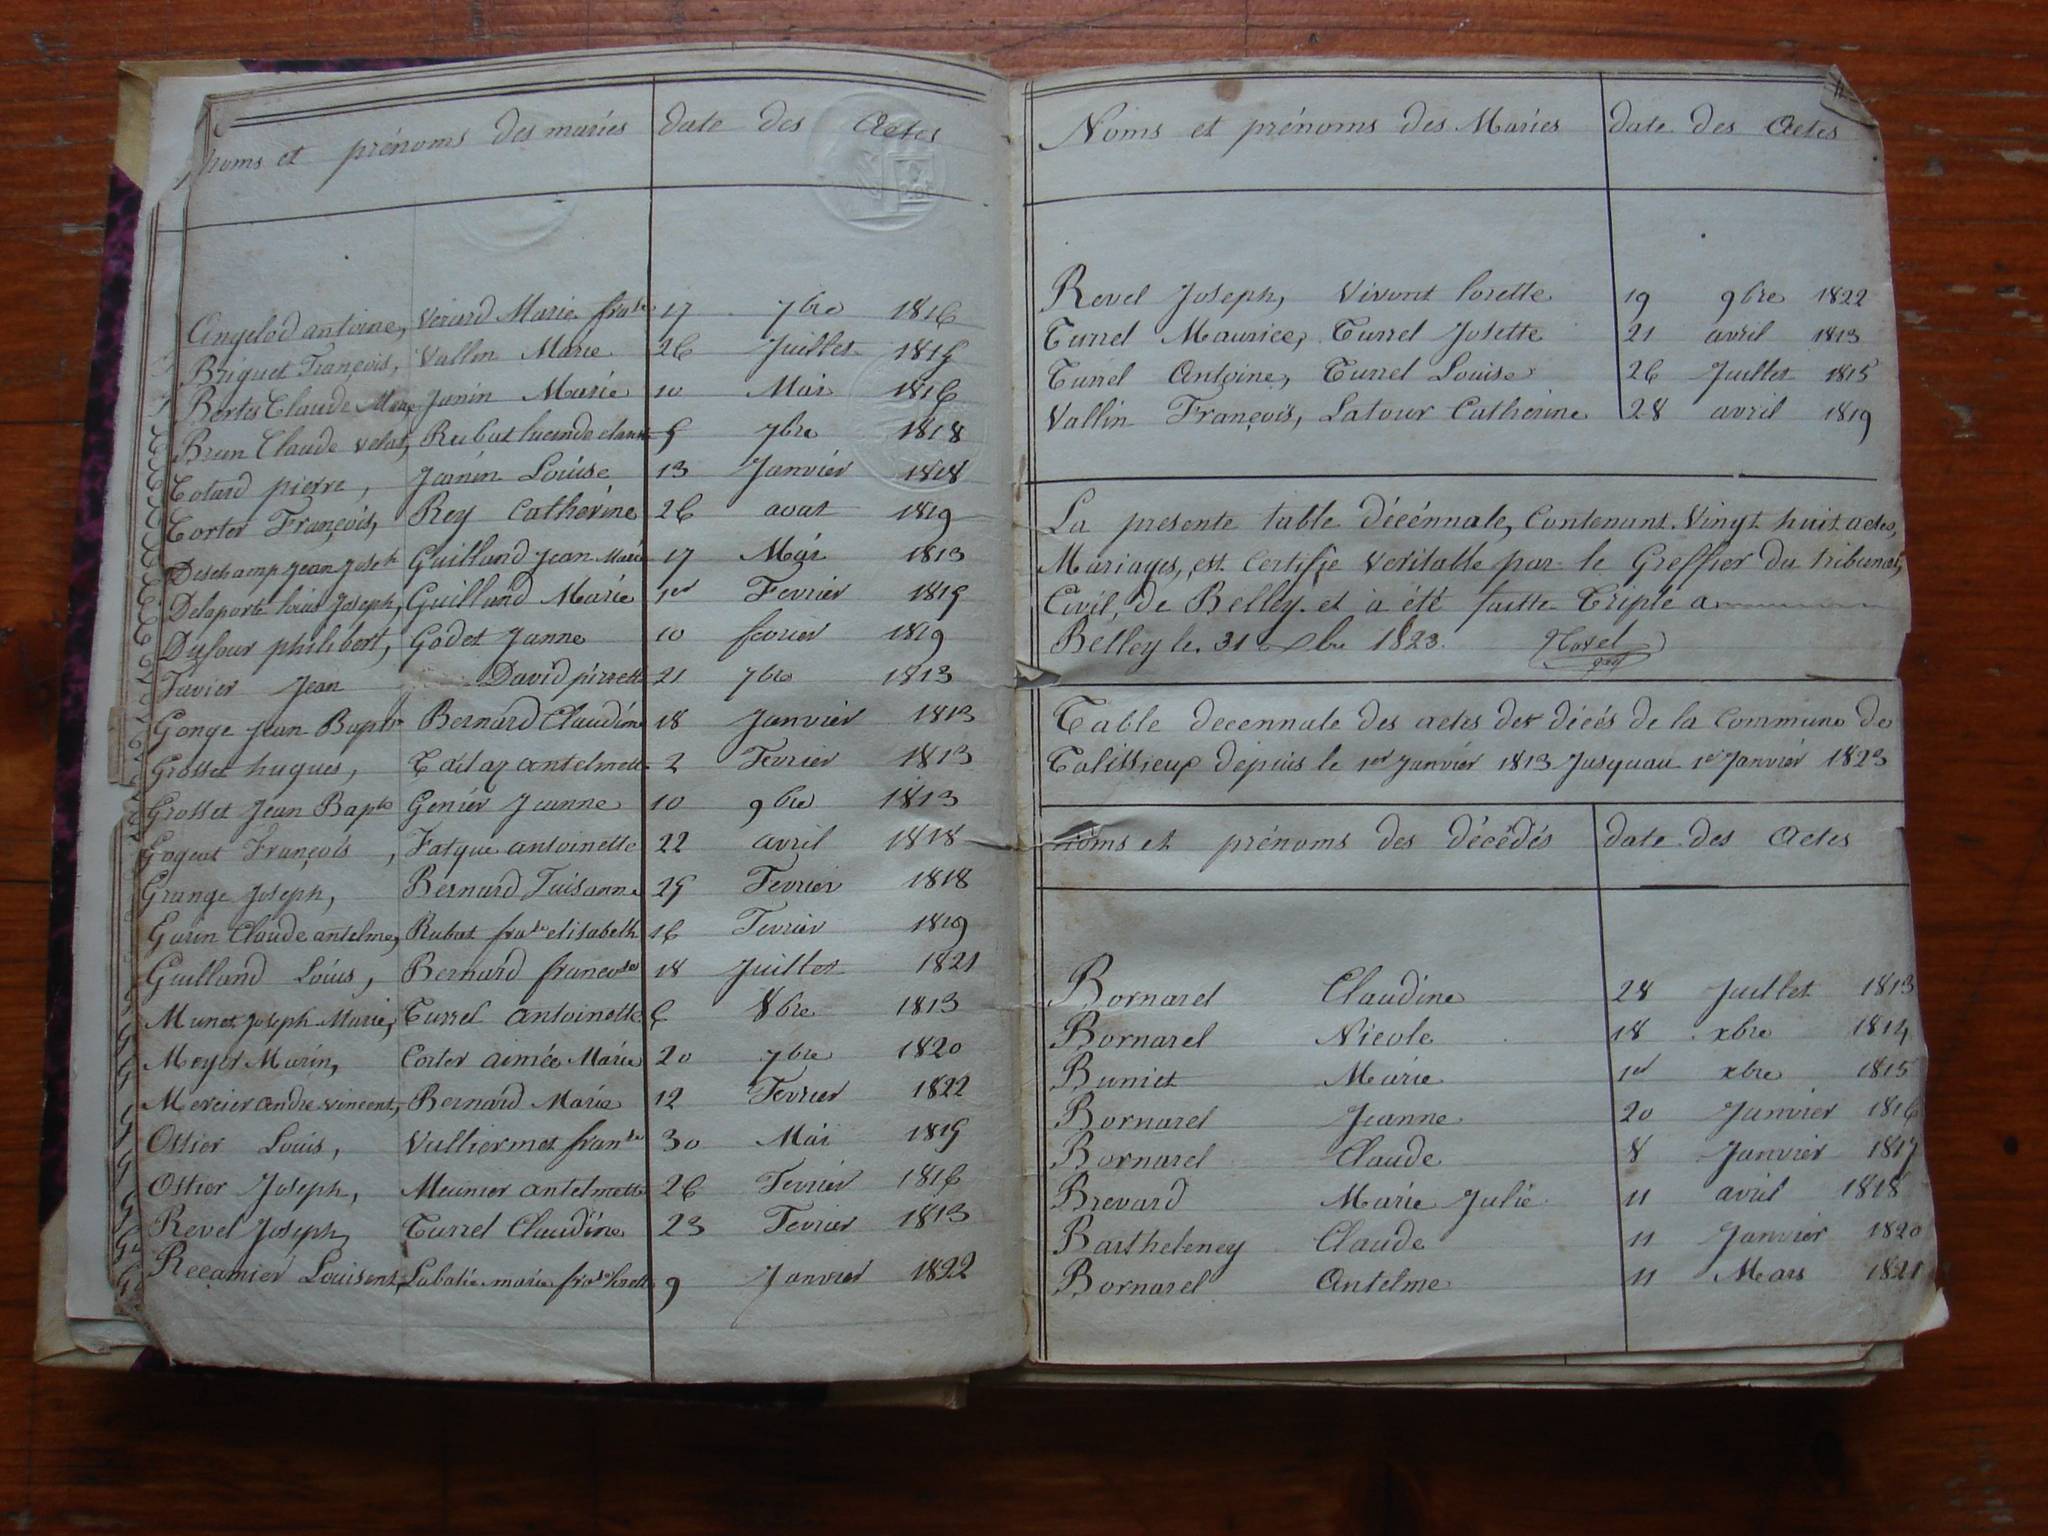 noms et prénoms des mariés date des Actes
Angelod antoine, Verard Marie franse 17 7bre 1816
Briguet François, Vallin Marie 26 Juillet 1815
Bertes Claude Marie Janin Marie 10 Mai 1816
Brun Claude Velat, Rubat lucinde 5 7bre 1818
Cotard pierre, Janin Louise 13 Janvier 1818
Corter François, Rey Catherine 26 aout 1819
Deschamp Jean Joseph Guilland Jean Marie 17 Mai 1813
Delaporte louis Joseph, Guilland Marie 1er Fevrier 1815
Dufour philibert, Godet Janne 10 fevrier 1819
Favier Jean David pierrette 21 7bre 1813
Gonge Jean Baptte Bernard Claudine 18 Janvier 1813
Grosset hugues, antelmette 2 Fevrier 1813
Grosset Jean Bapte Genier Jeanne 10 9bre 1813
Gogeat François, Fatque antoinette 22 avril 1818
Grange Joseph, Bernard Suisanne 25 Fevrier 1818
Garin Claude antelme, Rubat franse elisabeth 16 Fevrier 1819
Guilland Louis, Bernard francoise 18 Juillet 1821
Munet Joseph Marie, Turrel Antoinette 6 8bre 1813
Moyet Marin, Corter aimée Marie 20 7bre 1820
Mercier andre vincent, Bernard Marie 12 Fevrier 1822
Ostier Louis, Vulliermet franse 30 Mai 1815
Ostier Joseph, Meunier antelmette 26 Fevrier 1816
Revel Joseph, Turrel Claudine 23 Fevrier 1813
Recamier Louisent, Labatie marie franse lorette 9 Janvier 1822
Noms et prénoms des Mariés date des Actes
Revel Joseph, Vivont lorette 19 9bre 1822
Turrel Maurice, Turrel Josette 21 avril 1813
Turrel Antoine, Turrel Louise 26 Juillet 1815
Vallin François, Latour Catherine 28 avril 1819
La presente table décénnale, Contenant Vingt huit actes,
Mariages, est Certifie Veritable par le Greffier du tribunal,
Civil, de Belley et à été faitte Triple a
Belley le 31 Xbre 1823.
Table decennale des actes der décés de la Commune de
Talissieux depuis le 1er Janvier 1813 Jusquau 1er Janvier 1823
noms et prénoms des décédés date des Actes
Bornarel Claudine 28 Juillet 1813
Bornarel Nicole 18 xbre 1814
Buniet Marie 1er xbre 1815
Bornarel Jeanne 20 Janvier 1816
Bornarel Claude 8 Janvier 1817
Brevard Marie Julie 11 avril 1818
Bartheleney Claude 11 Janvier 1820
Bornarel Antelme 11 Mars 1821